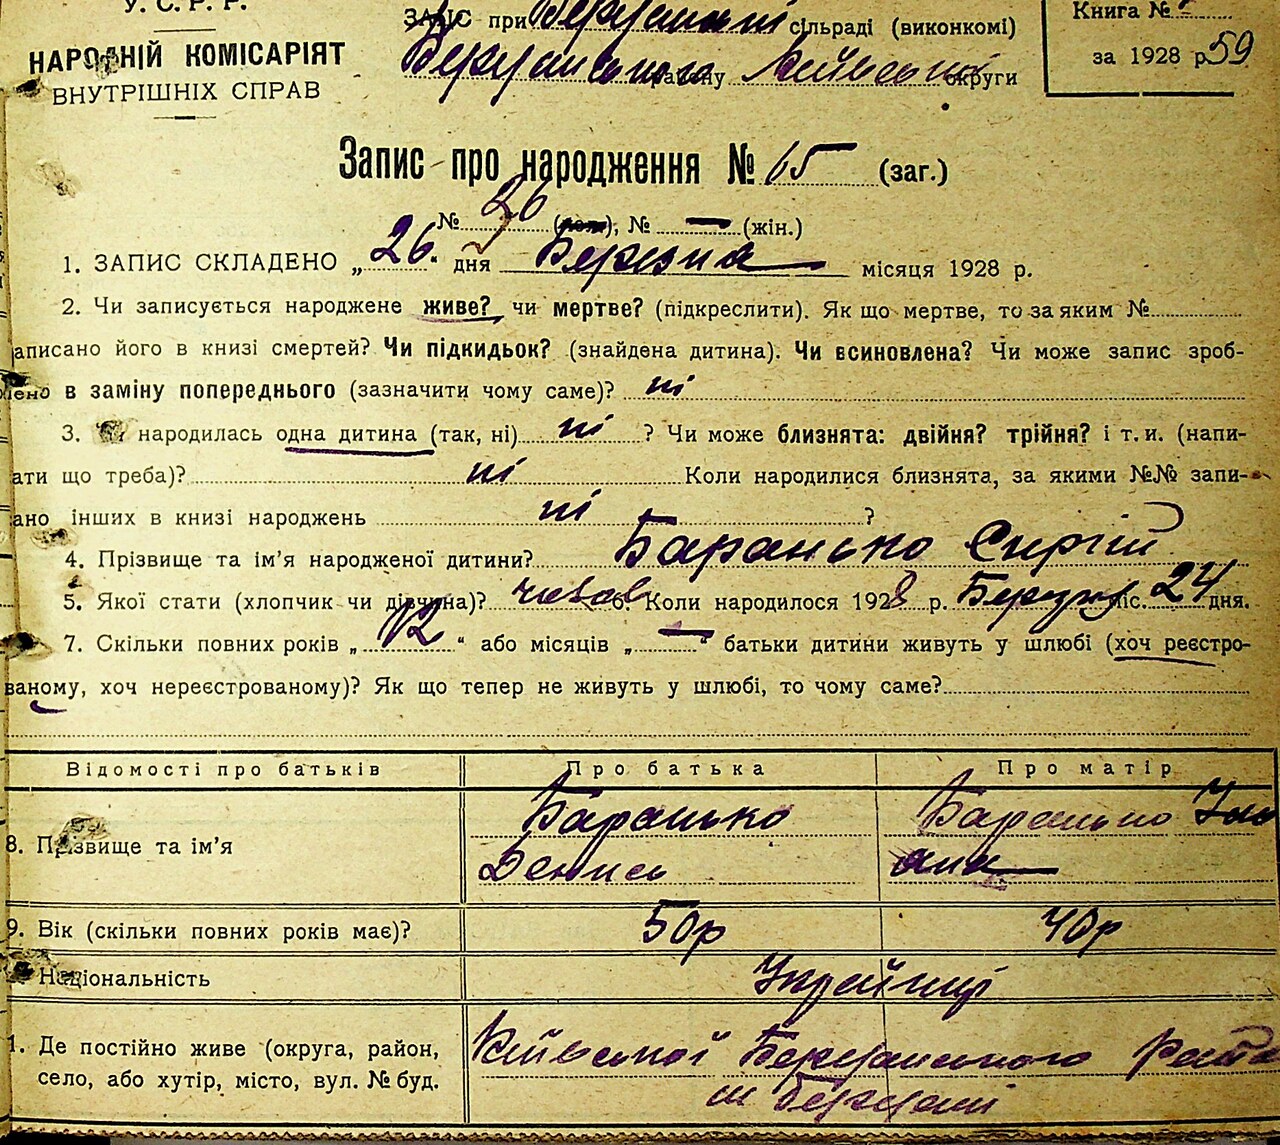 У. С. Р. Р.
НАРОДНІЙ КОМІСАРІЯТ
ВНУТРІШНІХ СПРАВ
ЗАПИС при сільраді (виконкомі)
району Київської округи
Книга №
за 1928 р. 59
Запис про народження № 65 (заг.)
№ 26 (чол.), № — (жін.)
1. ЗАПИС СКЛАДЕНО „26“ дня Березня місяця 1928 р.
2. Чи записується народжене живе? чи мертве? (підкреслити). Як що мертве, то за яким №
аписано його в книзі смертей? Чи підкидьок? (знайдена дитина). Чи всиновлена? Чи може запис зроб-
лено в заміну попереднього (зазначити чому саме)? ні
3. народилась одна дитина (так, ні) ні ? Чи може близнята: двійня? трійня? і т. и. (напи-
ати що треба)? ні Коли народилися близнята, за якими №№ запи-
ано інших в книзі народжень ні ?
4. Прізвище та ім’я народженої дитини? Баранько Сергій
5. Якої стати (хлопчик чи дівчина)? 6. Коли народилося 1928 р. міс. 24 дня.
7. Скільки повних років „12“ або місяців „—“ батьки дитини живуть у шлюбі (хоч реєстро-
ваному, хоч нереєстрованому)? Як що тепер не живуть у шлюбі, то чому саме?
Відомості про батьків Про батька Про матір
8. Прізвище та ім’я Баранько Денись Баранько
9. Вік (скільки повних років має)? 50р 40р
Національність Украйнці
1. Де постійно живе (округа, район, Київської
село, або хутір, місто, вул. № буд.